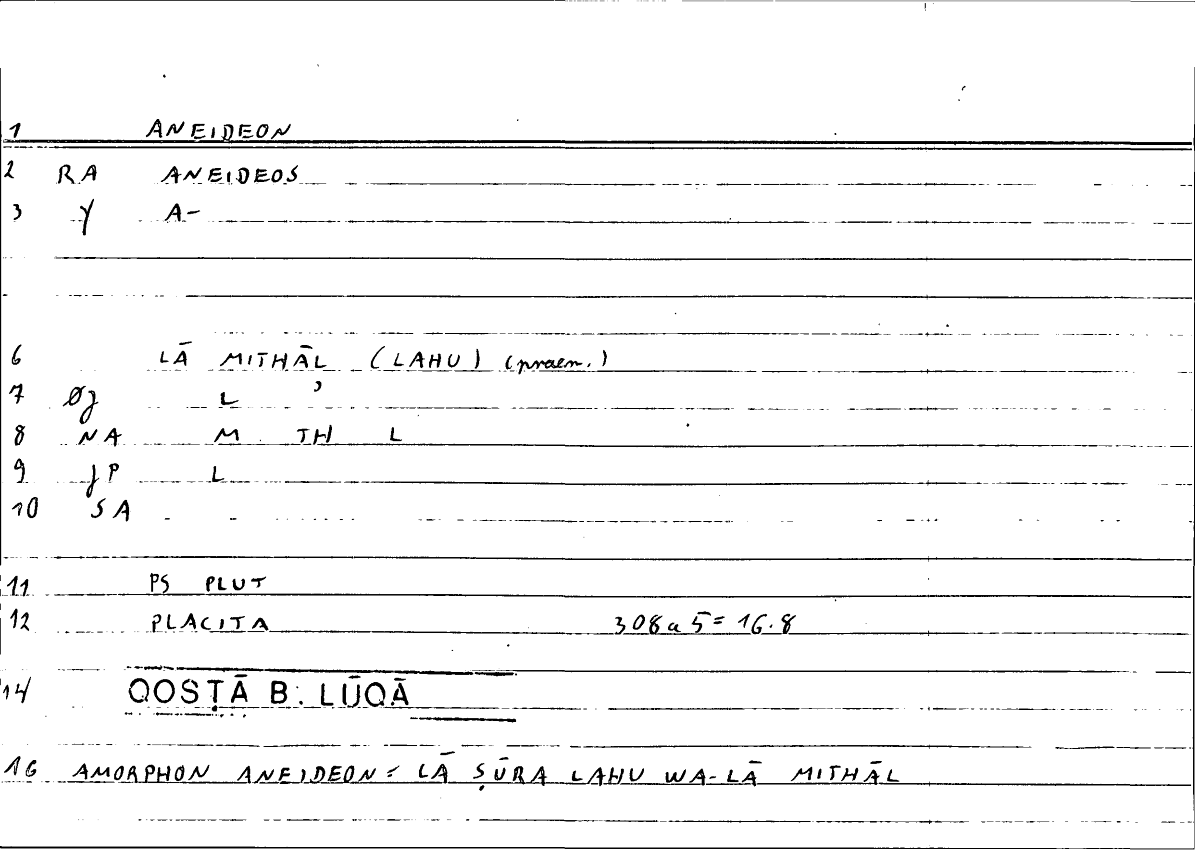 1 ANEIDEON
2 RA ANEIDEOS
3 Y A-
6 LĀ MITHĀL (LAHU) (praem.)
7 L ʾ
8 NA M TH L
9 JP L
10 SA
11 PS PLUT
12 PLACITA 308a5 = 16.8
14 QOSṬĀ B. LŪQĀ
16 AMORPHON ANEIDEON = LĀ ṢŪRA LAHU WA-LĀ MITHĀL